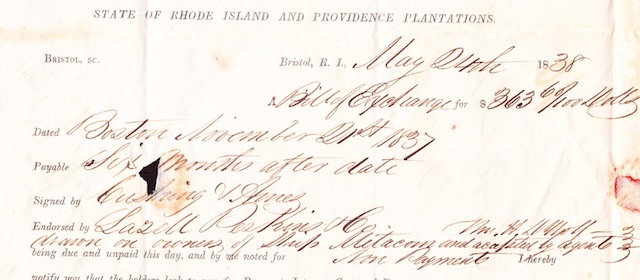 STATE OF RHODE ISLAND AND PROVIDENCE PLANTATIONS.
BRISTOL, SC. Bristol, R. I., May 24th 1838
A Bill of Exchange for $363 69/100 Dolls
Dated Boston November 21st 1837
Payable Six Months after date
Signed by Cushing & Ames
Endorsed by Lazell Perkins & Co Wm. H.
drawn on owners of Ship Metacom and accepted by agents
being due and unpaid this day, and by me noted for Non Payment I hereby
notify you that the holders look to you for